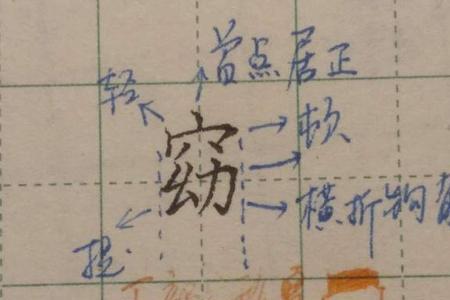 首点居正
轻
窈
顿
横折钩
提